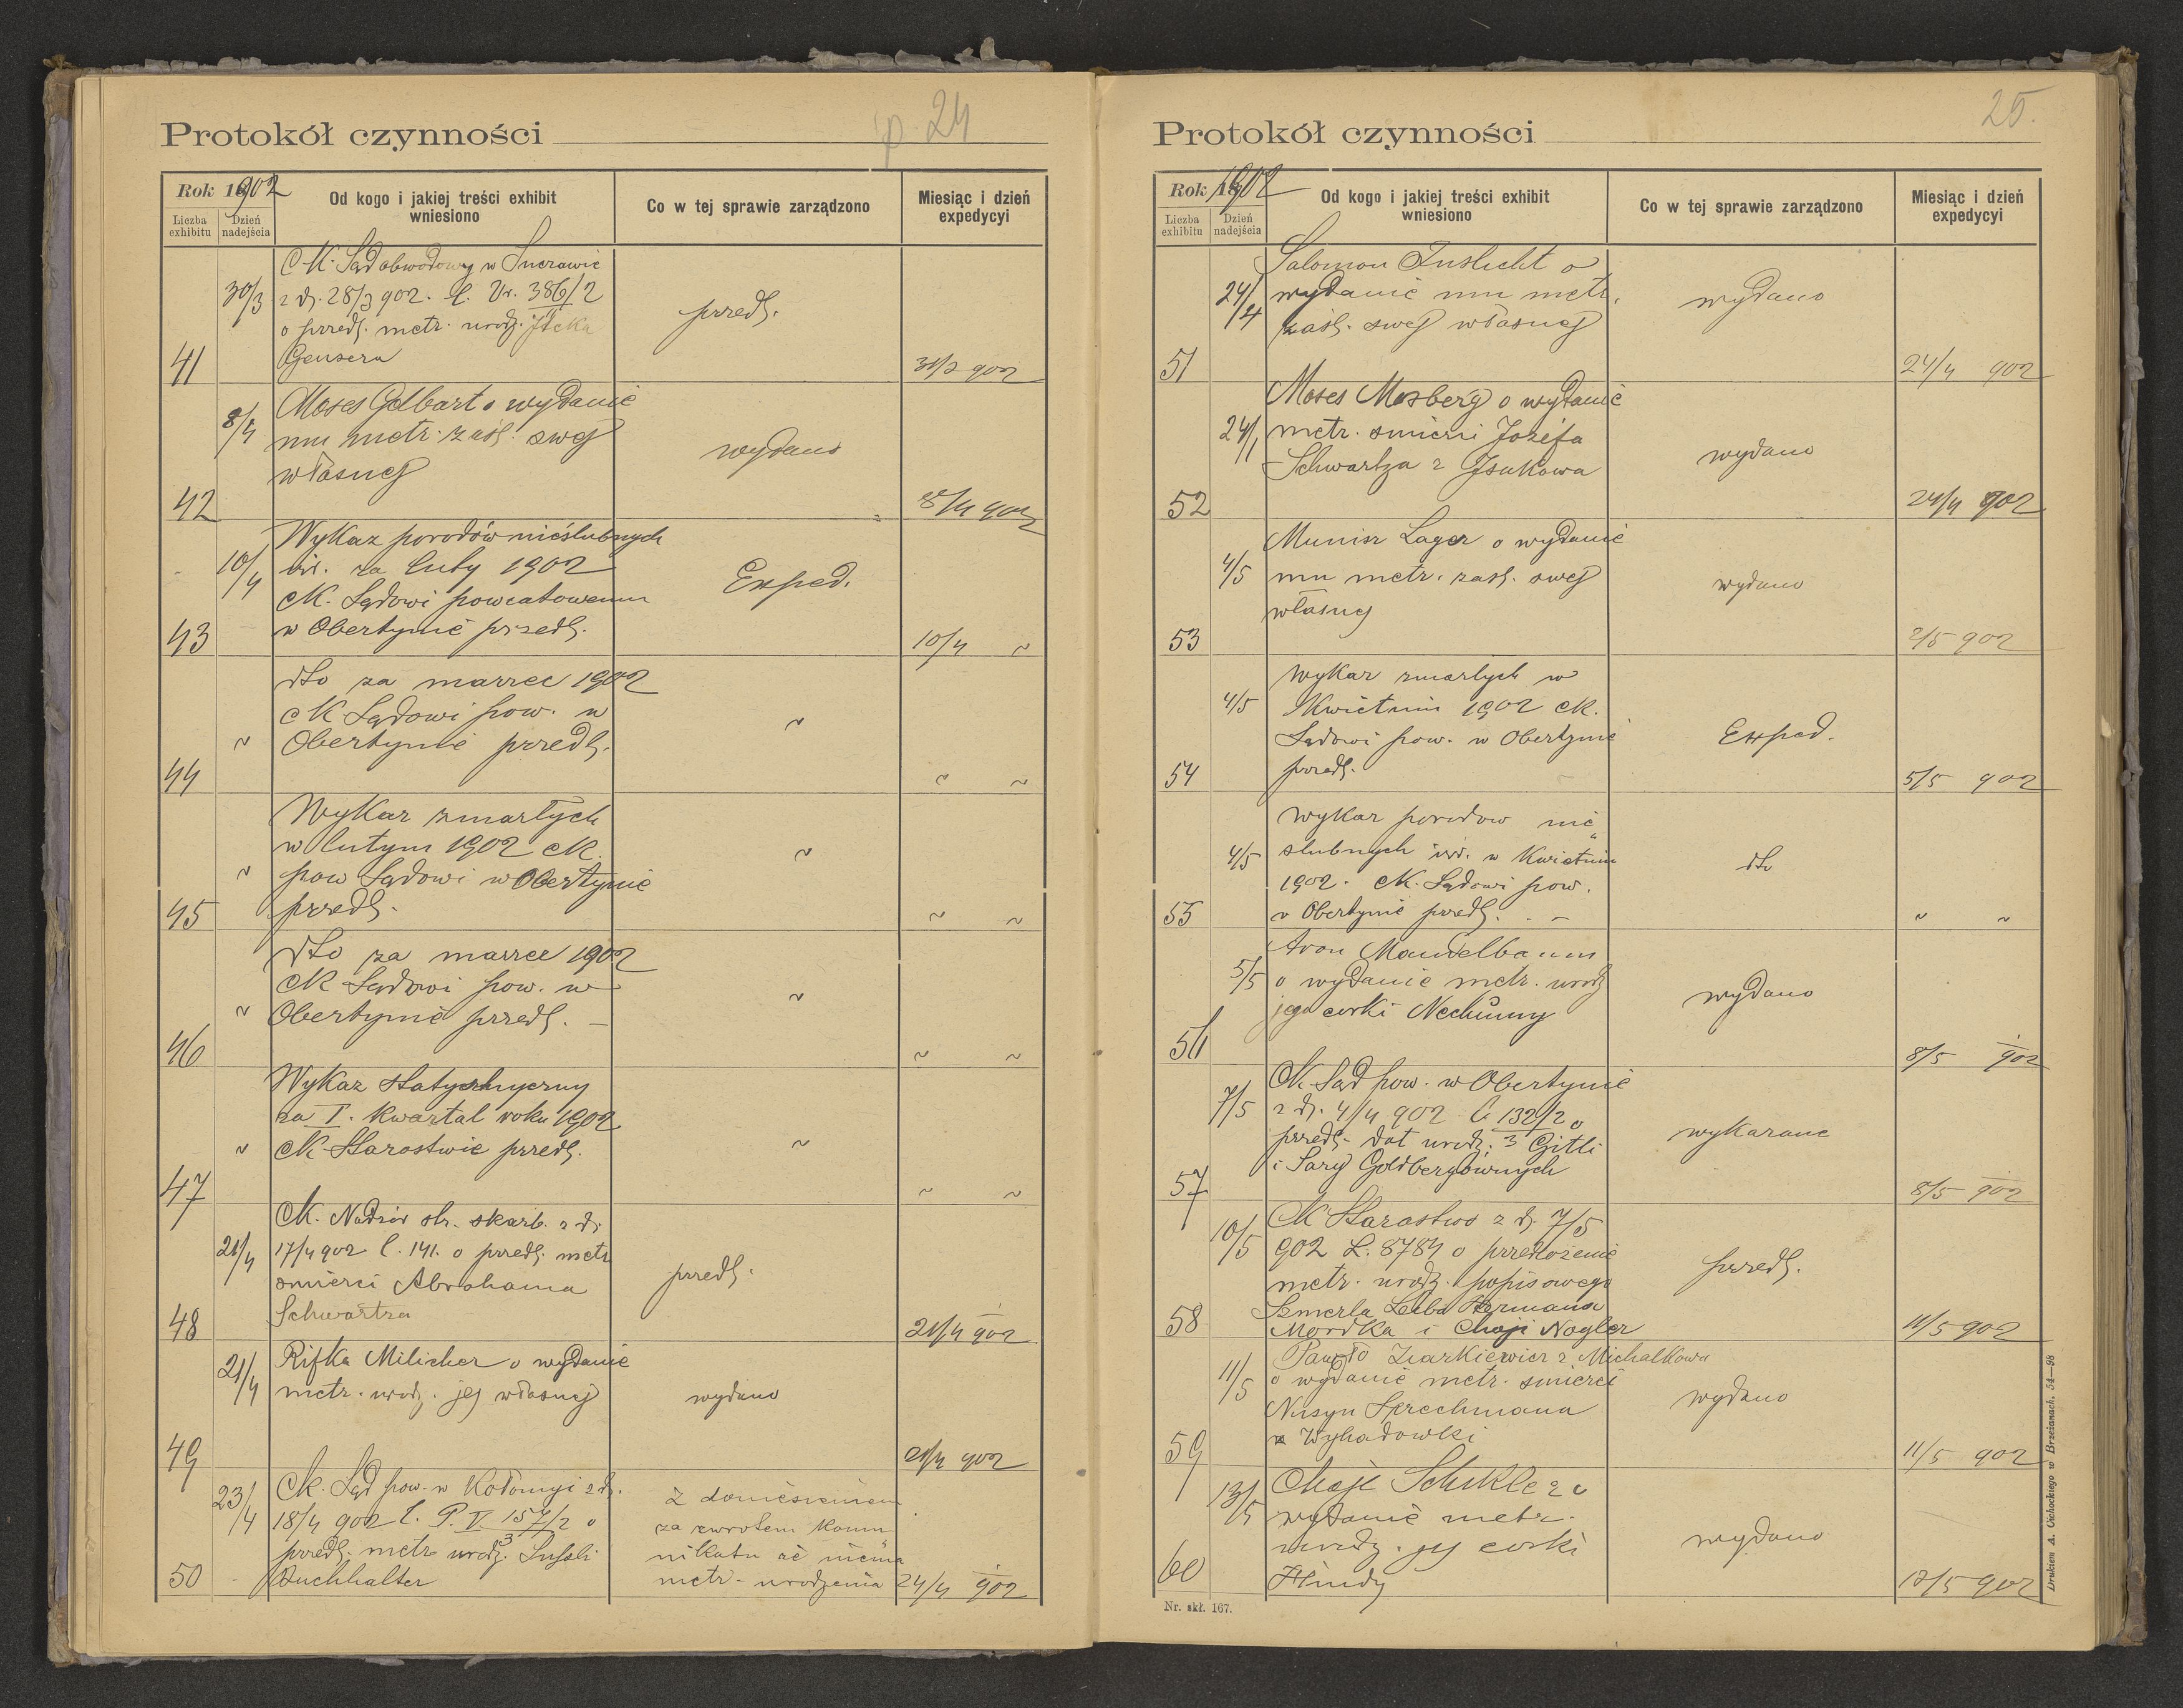 p. 24
Protokół czynności
Rok 1902
Liczba exhibitu
Dzień nadejścia
Od kogo i jakiej treści exhibit wniesiono
Co w tej sprawie zarządzono
Miesiąc i dzień expedycyi
41
30/3
CK. Sąd obwodowy w
z dj. 28/3 902. l. Vr. 386/2
o przedł. metr. urodz. Icka
Gensera
przedł.
31/3 902
42
8/4
Moses Gelbart o wydanie
mu metr. zaśl. swej
własnej
wydano
8/4 902
43
10/4
Wykaz porodów nieślubnych
izr. za luty 1902
CK. Sądowi powiatowemu
w Obertynie przedł.
Exped.
10/4 ~
44
~
dto za marzec 1902
CK Sądowi pow. w
Obertynie przedł.
~
~ ~
45
~
Wykaz zmarłych
w lutym 1902 CK.
pow Sądowi w Obertynie
przedł.
~
~ ~
46
~
dto za marzec 1902
CK Sądowi pow. w
Obertynie przedł. –
~
~ ~
47
~
Wykaz statystyczny
za I. kwartal roku 1902
CK Starostwie przedł.
~
~ ~
48
21/4
CK. Nadzór str. skarb. z dj.
17/4 902 l. 141. o przedł. metr
smierci Abrahama
Schwartza
przedł.
21/4 902
49
21/4
Rifka Milicher o wydanie
metr. urodz. jej własnej
wydano
21/4 902
50
23/4
Ck. Sąd pow. w Kołomyi z dj.
18/4 902 l. P. V 157/2 o
3
przedł. metr urodz.
Buchhalter
z doniesieniem
za zwrotem komu
nikatu że niema
metr - urodzenia
24/4 902
25.
Protokół czynności
Rok 1902
Liczba exhibitu
Dzień nadejścia
Od kogo i jakiej treści exhibit wniesiono
Co w tej sprawie zarządzono
Miesiąc i dzień expedycyi
51
24/4
Salomon Inslicht o
wydanie mu metr.
zaśl. swej własnej
wydano
24/4 902
52
24/
Moses Mosberg o wydanie
metr. smierci Jozefa
Schwartza z Isakowa
wydano
24/4 902
53
4/5
Munisz Lager o wydanie
mu metr. zaśl. swej
własnej
wydano
/5 902
54
4/5
Wykaz zmarłych w
Kwietniu 1902 CK.
Sądowi pow. w Obertynie
przedł.
Exped.
5/5 902
55
4/5
Wykaz porodow nie
slubnych izr. w Kwietniu
1902. CK. Sądowi pow.
w Obertynie przedł. . –
dto
~ ~
56
5/5
Aron Mandelbaum
o wydanie metr. urodz
jego corki Nechumy
wydano
8/5 902
57
7/5
CK. Sąd pow. w Obertynie
z dj. 4/4 902 l. 132/2 o
3
przedł. dat urodz. Gitli
i Sary Goldbergównych
wykazane
8/5 902
58
10/5
CK Starostwo z dj. 7/5
902 L. 8784 o przedłożenie
metr. urodz. popisowego
Szmerla Leiba Hermana
Mordka i Chaji Nagler
przedł.
11/5 902
59
11/5
Pawło z Michalkowa
o wydanie metr. smierci
Nusyn Sprechmana
z Wyhadowki
wydano
11/5 902
60
13/5
Chaje o
wydanie metr.
urodz. jej corki
Hindy
wydano
13/5 902
Nr. skł. 167.
Drukiem A. Cichockiego w Brzeżanach. 54—98